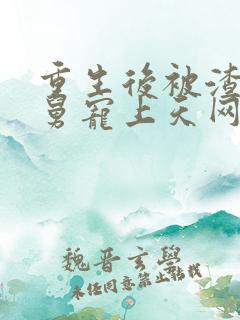 重生後被渣
舅寵上天网
魏晋玄學
未任同意禁止轉載